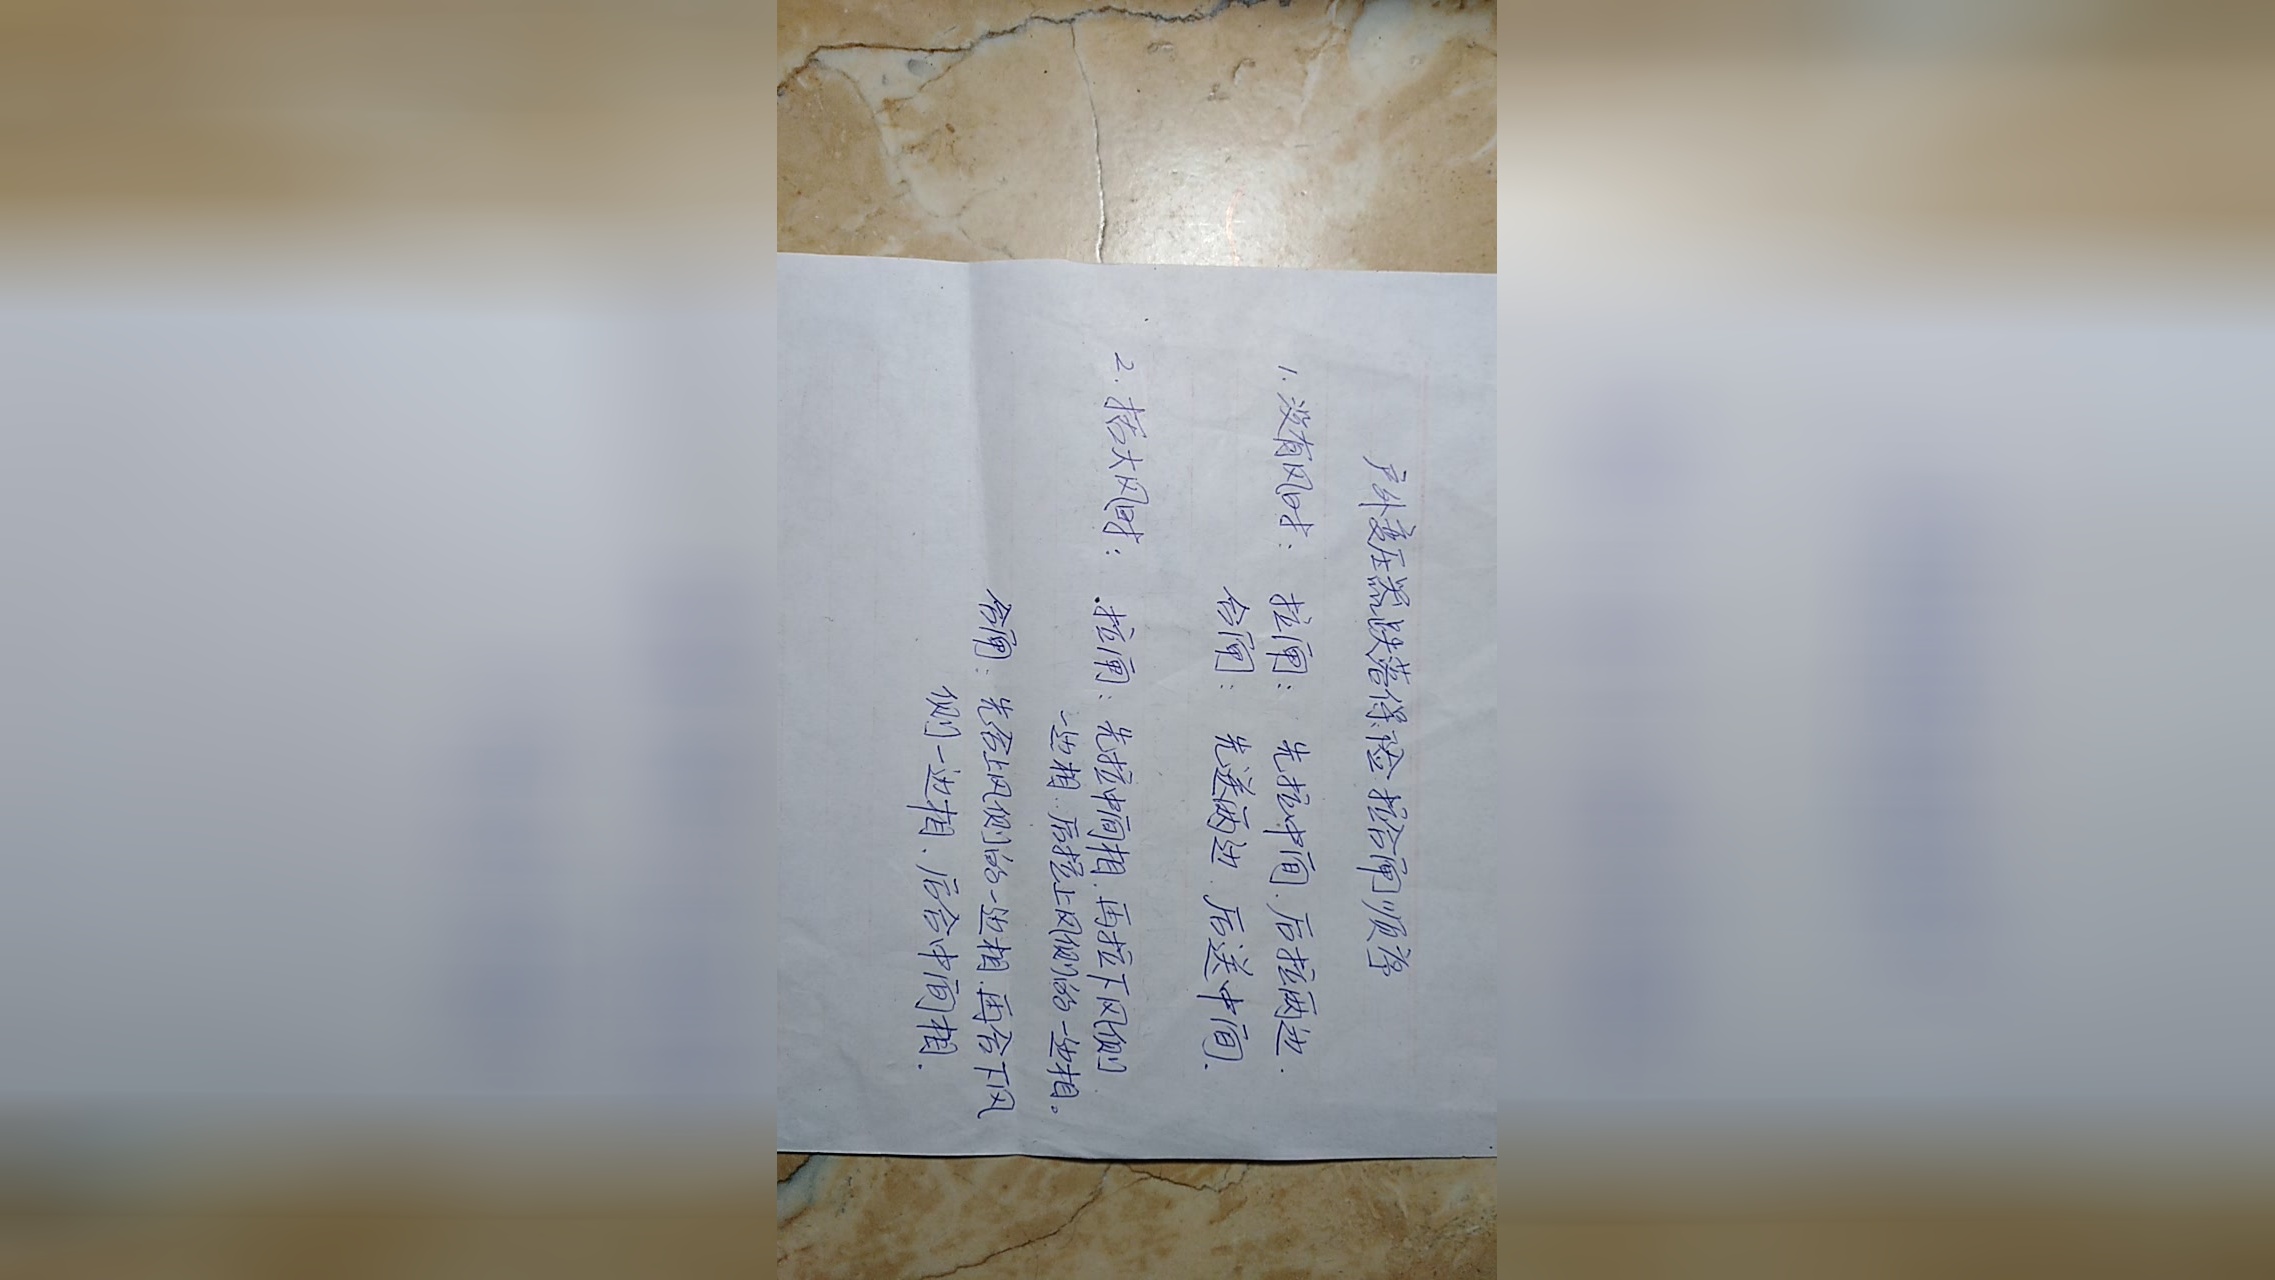 户外变压器跌落保险 拉合闸顺序
1. 没有风时: 拉闸: 先拉中间. 后拉两边.
合闸: 先送两边. 后送中间.
2. 搭大风时: 拉闸: 先拉中间相. 再拉下风侧
一边相. 后拉上风侧的一边相。
合闸: 先合上风侧的一边相. 再合下风
侧一边相. 后合中间相.